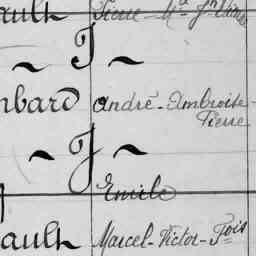 ault Pierre - M
~ I ~
mbard André - Ambroise -
Pierre
~ J ~
Emile
ault Marcel - Victor - Fois